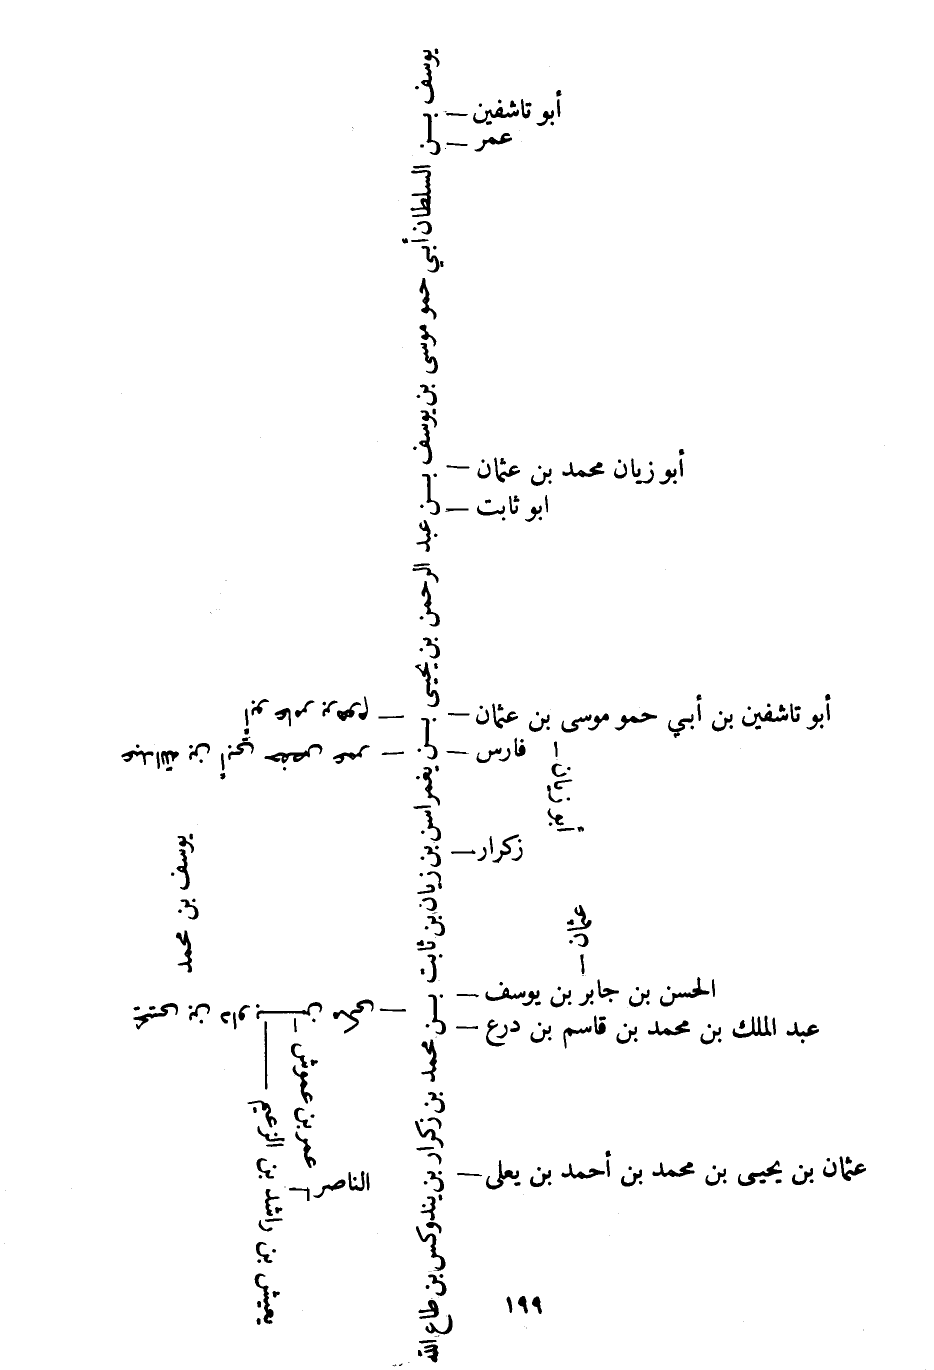 يوسف بن السلطان أبي حمو موسى بن يوسف بن عبد الرحمن بن يحيى بن يغمراسن بن زيان بن ثابت بن محمد بن زكرار بن يندوكس بن طاع الله
أبو تاشفين
عمر
أبو زيان محمد بن عثمان
ابو ثابت
أبو تاشفين بن أبي حمو موسى بن عثمان
فارس
أبو زيان
أبو عامر برهوم
عبدالله بن أبي حفص عمر
زكرار
يوسف بن محمد
عثمان
الحسن بن جابر بن يوسف
عبد الملك بن محمد بن قاسم بن درع
عمر بن عموش
يعيش بن راشد بن الزعيم
الناصر
عثمان بن يحيى بن محمد بن أحمد بن يعلى
١٩٩